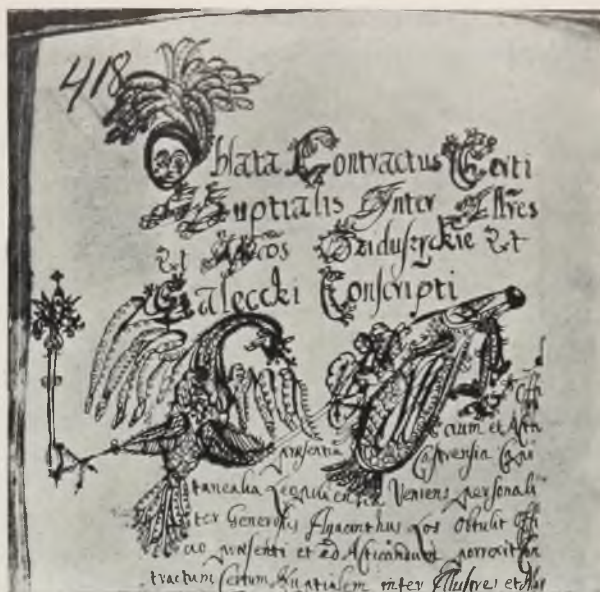 418
Oblata Contractus Certi
Nuptialis Inter Illres
Et Mcos Dziduszyckie Et
Conscripti
Offi
cium et Acta
præsentia Castrensia Capi
tanealia Veniens personali
ter Generosus Hyacinthus obtulit Offi
cio præsenti et ad Acticandum porrexit
tractum Certum Nuptialem inter Illustres et